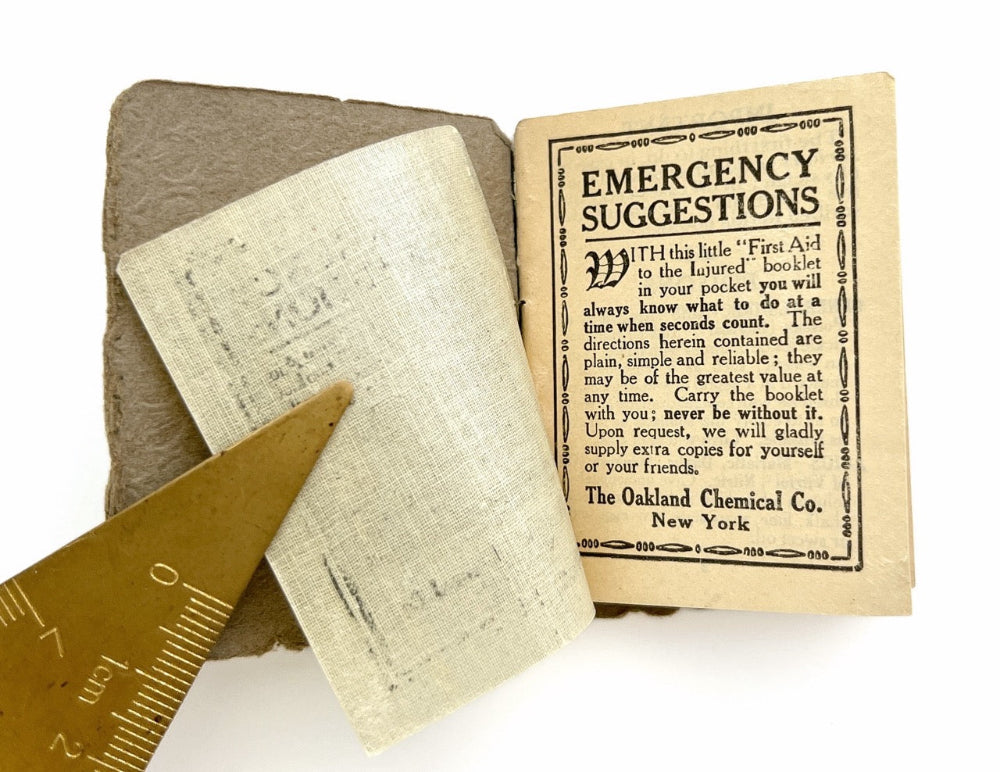 EMERGENCY
SUGGESTIONS
WITH this little "First Aid
to the Injured" booklet
in your pocket you will
always know what to do at a
time when seconds count. The
directions herein contained are
plain, simple and reliable; they
may be of the greatest value at
any time. Carry the booklet
with you; never be without it.
Upon request, we will gladly
supply extra copies for yourself
or your friends.
The Oakland Chemical Co.
New York
0
1cm
2
7